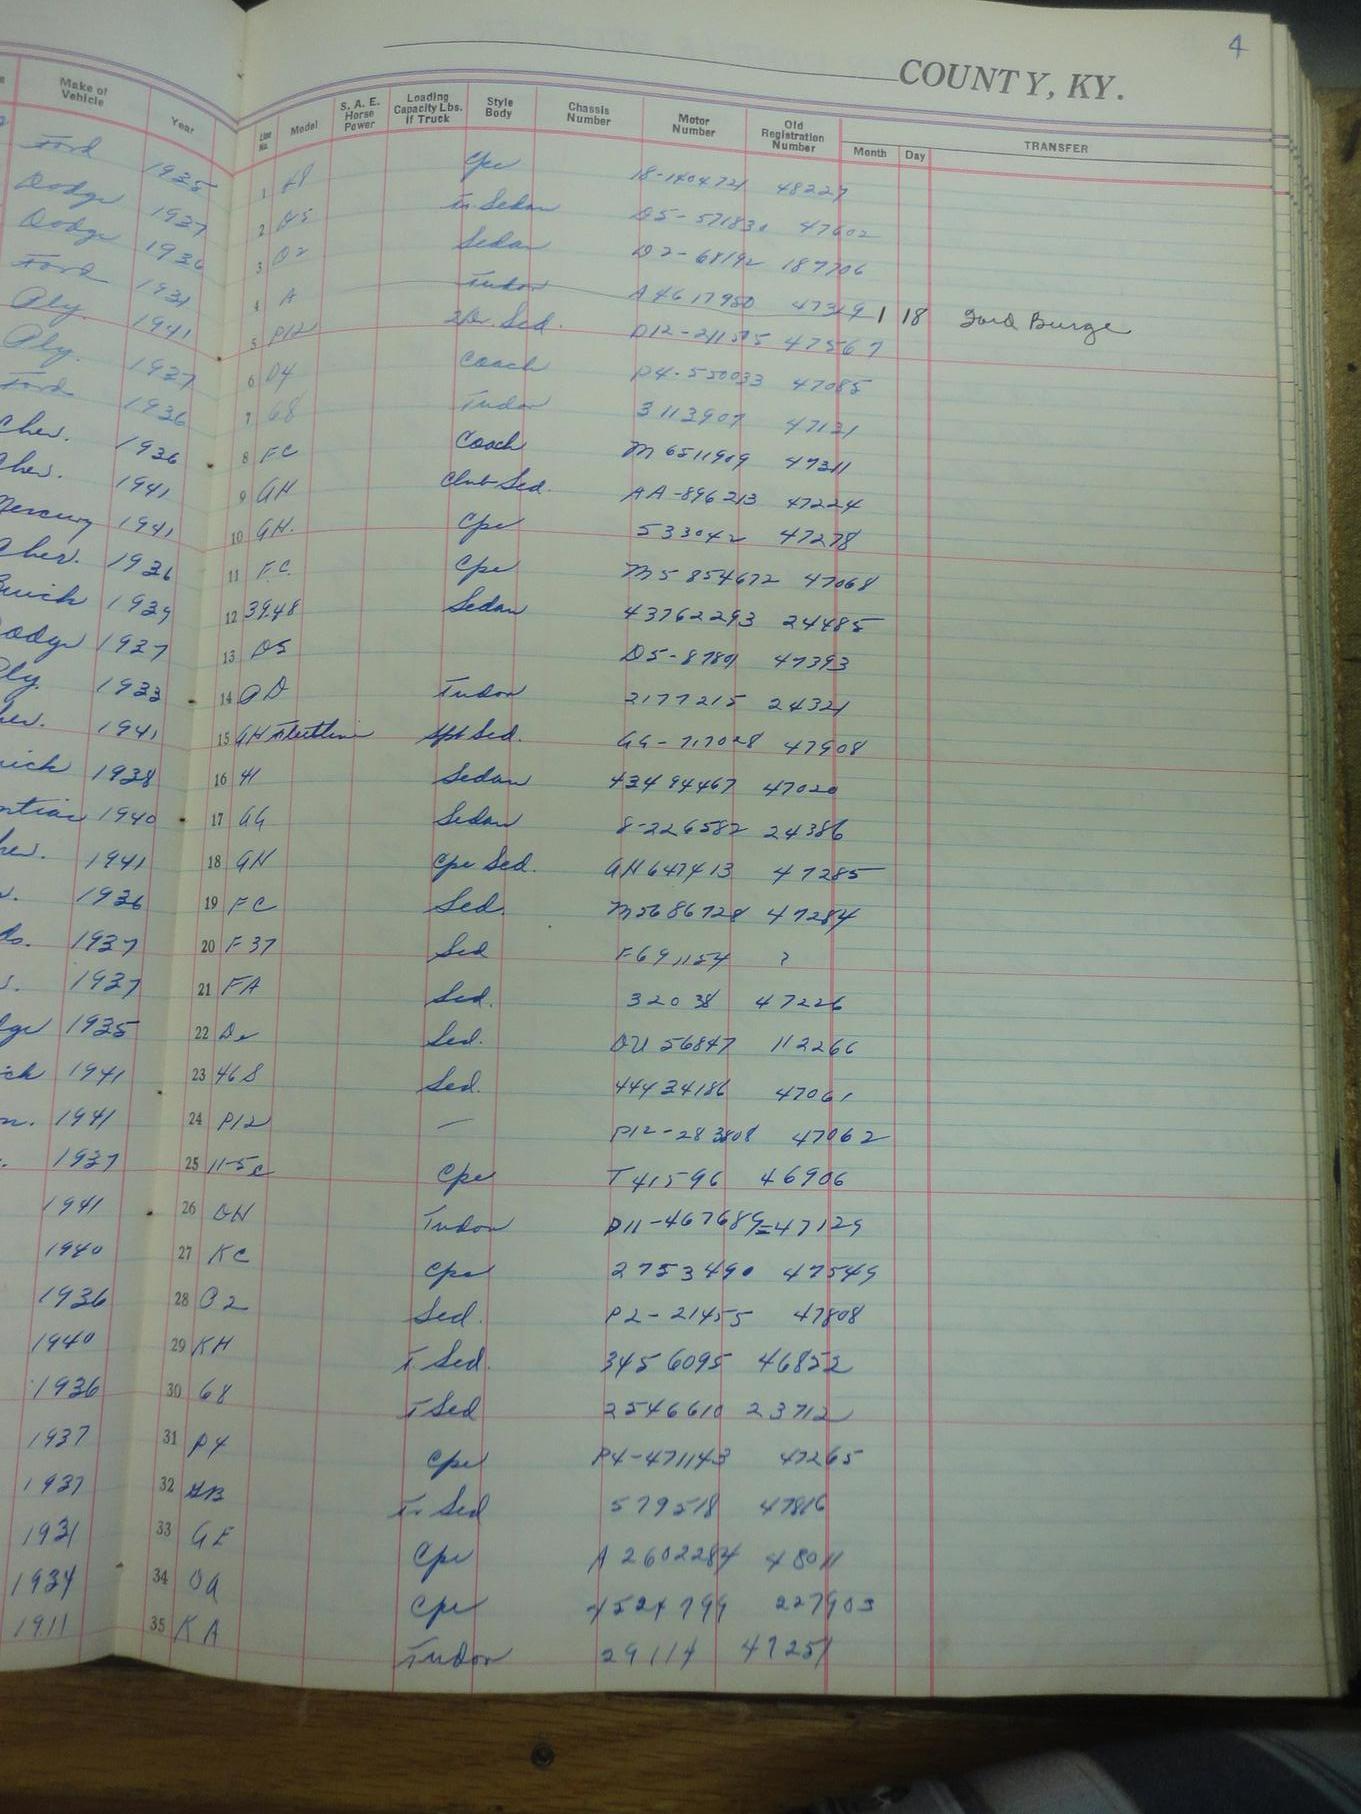 4
COUNTY, KY.
Make of Vehicle Year Line No. Model S. A. E. Horse Power Loading Capacity Lbs. if Truck Style Body Chassis Number Motor Number Old Registration Number Month Day TRANSFER
Ford 1935 1 48 Cpe 18-1404721 48227
Dodge 1937 2 D5 Tr. Sedan D5-571830 47602
Dodge 1936 3 D2 Sedan D2-68192 187706
Ford 1931 4 A Tudor A4617950 47319 1 18 Burge
Ply. 1941 5 P12 2Dr. Sed. P12-211505 47567
Ply. 1937 6 P4 Coach P4-550033 47085
Ford 1936 7 68 Tudor 3113907 47131
Chev. 1936 8 FC Coach M6511909 47311
Chev. 1941 9 GH Club Sed. AA-896213 47224
Mercury 1941 10 GH. Cpe 533042 47278
Chev. 1936 11 FC. Cpe M5854672 47068
Buick 1939 12 39.48 Sedan 43762293 24485
Dodge 1937 13 D5 D5-8789 47393
Ply. 1933 14 PD Tudor 2177215 24321
1941 15 GH Fleetline Spt Sed. GG-717028 47908
1938 16 41 Sedan 43494467 47020
1940 17 GG Sedan 8-226582 24386
1941 18 GH Cpe Sed. GH647413 47285
1936 19 FC Sed. M5686728 47284
1937 20 F 37 Sed F691154 ?
1937 21 FA Sed. 32038 47226
1935 22 Sed. DU 56847 112266
1941 23 46S Sed. 44434186 47061
1941 24 P12 — P12-283808 47062
1937 25 Cpe T41596 46906
1941 26 DH Tudor P11-467689=47129
1940 27 KC Cpe 2753490 47549
1936 28 P2 Sed. P2-21455 47808
1940 29 KH T Sed. 3456095 46852
1936 30 68 T Sed 2546610 23712
1937 31 P4 Cpe P4-471143 47265
1937 32 GB Tr Sed 579518 47816
1931 33 GE Cpe A 2602284 48011
1934 34 DA Cpe 4524799 227903
1911 35 KA Tudor 29114 47251